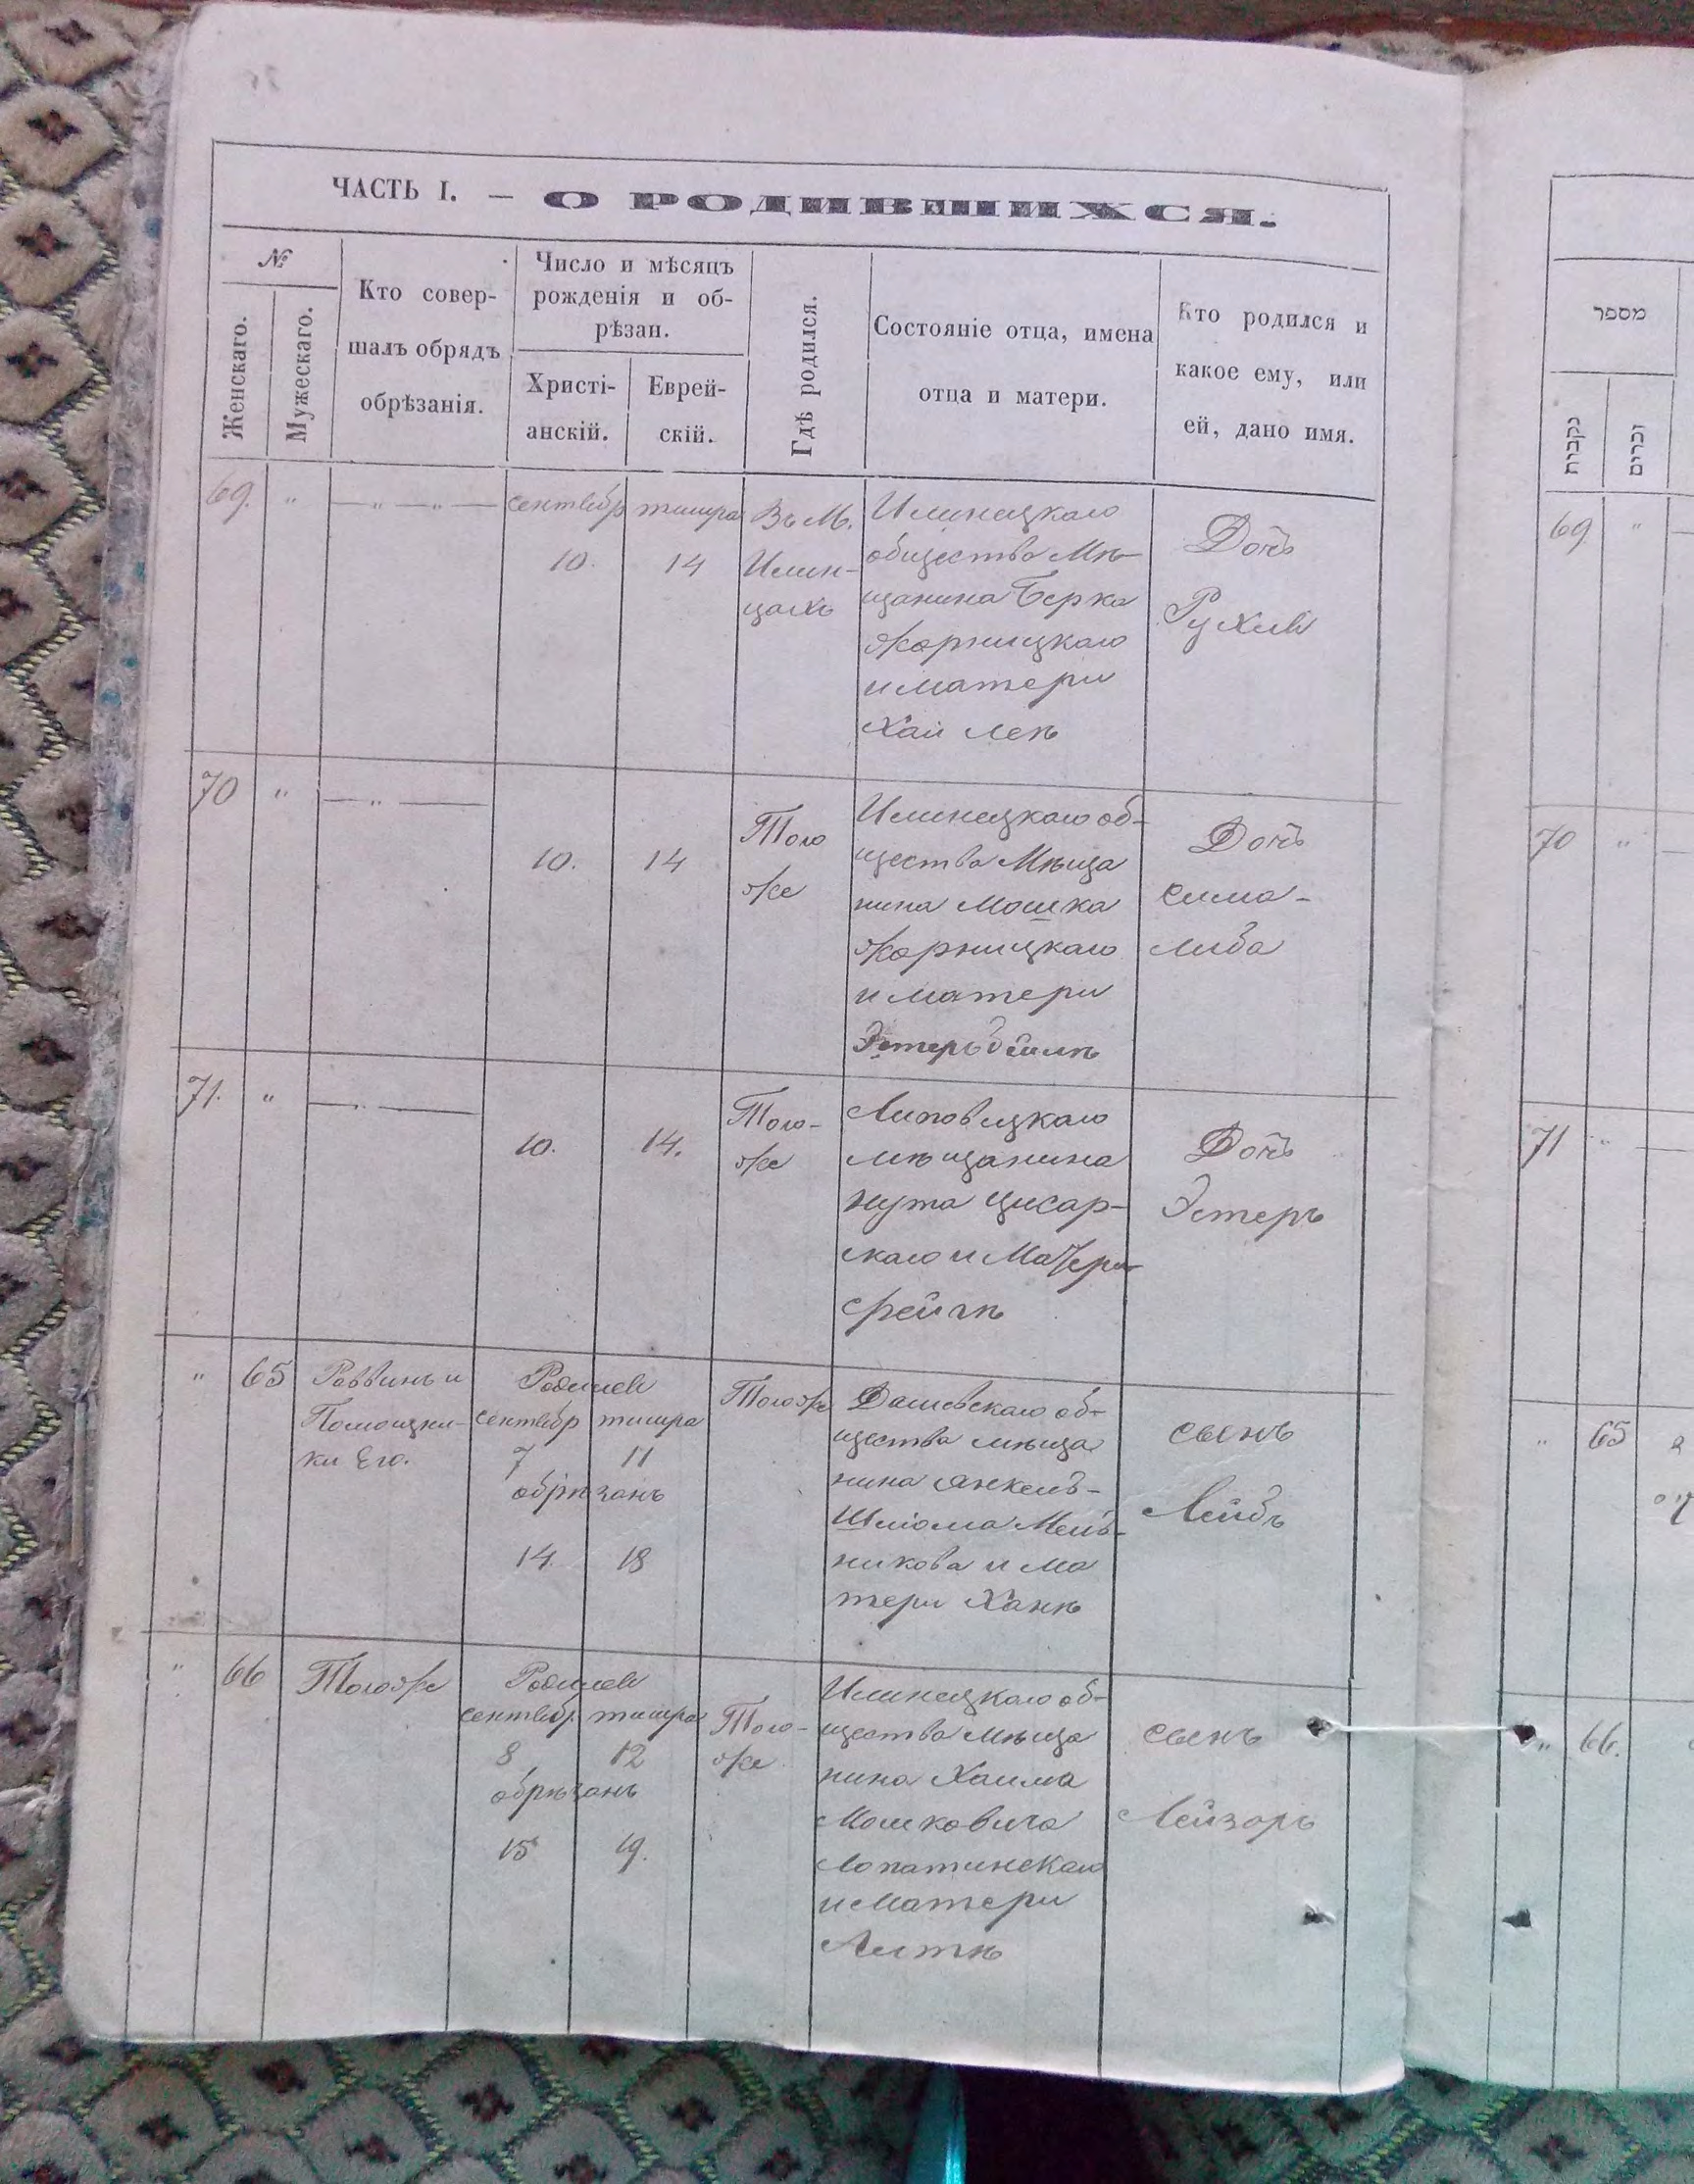 ЧАСТЬ I. — О РОДИВШИХСЯ.
№
Женскаго.
Мужескаго.
Кто совер-
шалъ обрядъ
обрѣзанія.
Число и мѣсяцъ
рожденія и об-
рѣзан.
Христі-
анскій.
Еврей-
скій.
Гдѣ родился.
Состояніе отца, имена
отца и матери.
Кто родился и
какое ему, или
ей, дано имя.
69. " — " — " —
сентябр тишра
10. 14
Въ М.
Илин-
цахъ
Илинецкаго
общества Мѣ-
щанина Берка
Жорницкаго
и матери
Хаи Леѣ
Дочь
Рухля
70 " — " —
10. 14
Того
же
Илинецкаго об-
щества Мѣща
нина Мошка
Жорницкаго
и матери
Дочь
Сима-
либа
71. " — " —
10. 14.
Того-
же
Липовецкаго
мѣщанина
Нута Цисар-
скаго и Матери
Фейгѣ
Дочь
Эстеръ
" 65
Раввинъ и
Помощни-
ки Его.
Родился
сентябр тишра
7 11
обрѣзанъ
14. 18
Тогоже
Дашевскаго об-
щества мѣща
нина Янкель-
Шліома Мель-
никова и ма
тери Ханѣ
сынъ
Лейбъ
" 66
Тогоже
Родился
сентябр. тишра
8 12
обрѣзанъ
15 19.
Того-
же
Илинецкаго об-
щества мѣща
нина Хаима
Мошковича
Лопатинскаго
и матери
Сынъ
Лейзоръ
מספר
נקבות
זכרים
69 "
70 "
71 "
" 65
" 66.